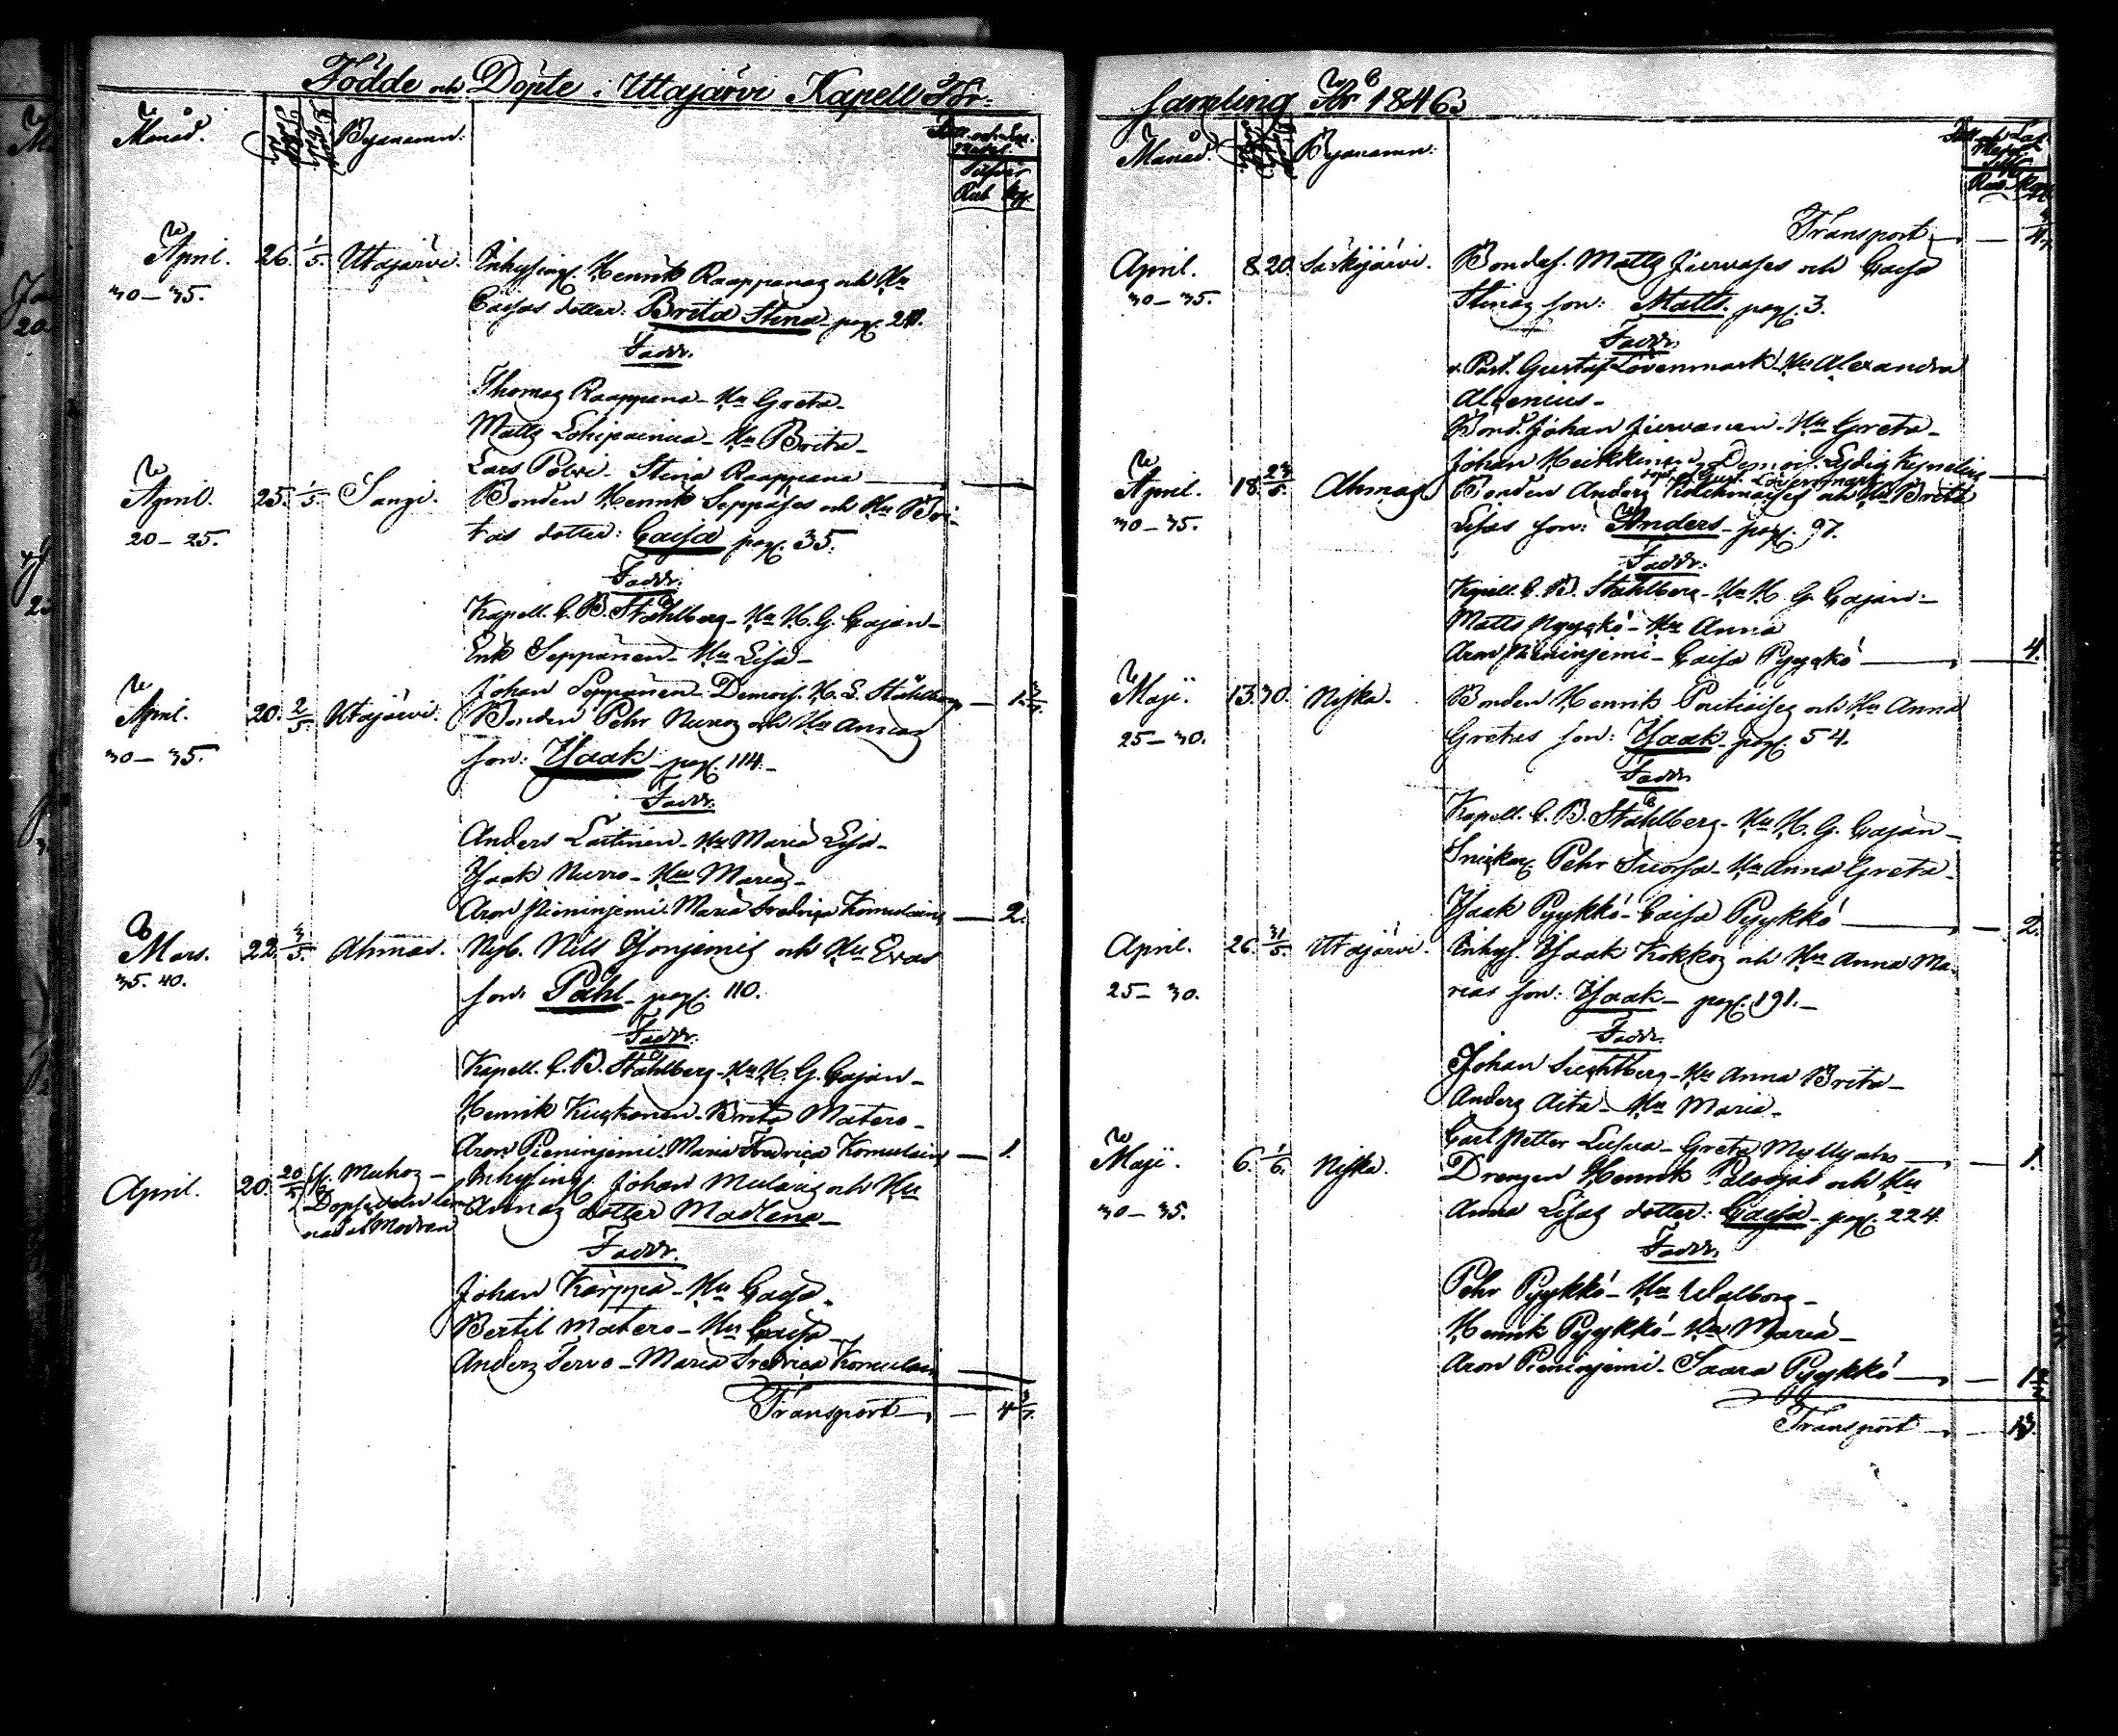 Födde och Döpte i Uttajärvi Kapell För-
Månad. Byanamn.
Silfver
Rub Kop.
April. 26. 1/5. Utajärvi. Inhysing. Henrik Raappanas och Hu
30–35. Caisas dotter: Brita Stina pag. 211.
Fadd.
Thomas Raappana – Hu Greta –
Matts Lohipainua – Hu Brita –
Lars Polvi – Stina Raappana
April. 25. 1/5. Sangi. Bonden Henrik Seppäses och Hu Bri-
20–25. tas dotter: Caisa pag. 35.
Fadd.
Kapell. C. B. Ståhlberg – Hu H. G. Cajan –
Erik Seppänen – Hu Lisa –
Johan Seppänen – Demois. H. L. Ståhlberg – 1 3/7.
April. 20. 2/5. Utajärvi. Bonden Pehr Nurros och Hu Annas
30–35. son: Isaak – pag. 114. –
Fadd.
Anders Laitinen – Hu Maria Lisa –
Isaak Nurro – Hu Maria –
Aron Pieninjemi. Maria Fredrica Komulain – 2.
Mars. 22. 3/5. Ahmas. Nyb. Nils Isonjemis och Hu Evas
35. 40. son. Påhl – pag. 110.
Fadd.
Kapell. C. B. Ståhlberg – Hu H. G. Cajan –
Henrik Kuskonen – Brita Matero –
Aron Pieninjemi. Maria Fredrica Komulain – 1.
April. 20. 20/5 fr. Muhos – Inhysing. Johan Mularis och Hu
Dopsedeln lem- Annas dotter Madlena –
nad åt Modren
Fadd.
Johan Kärppä – Hu Caisa.
Bertil Matero – Hu Caisa –
Anders Tervo – Maria Fredrica Komulain
Transport – 4 3/7.
samling År 1846.
Månad. Byanamn.
Rub. Kop.
Transport – 4 3/7.
April. 8. 20. Särkijärvi. Bondes. Matts Jurvases och Caisa
30–35. Stinas son: Matts. pag. 3.
Fadd.
v. Past. Gustaf Lövenmark – Hu Alexandra
Algenius –
Bond. Johan Jurvanen – Hu Greta –
Johan Heikkinen – Demois. Lydia
April. 18. 23/5. Ahmas. Bonden Anders och Hu Brita
30–35. Lisas son: Anders – pag. 97.
Fadd.
Kapell. C. B. Ståhlberg – Hu H. G. Cajan. –
Matts Pyykkö – Hu Anna
Aron Pieninjemi – Caisa Pyykkö – 4.
Maji. 13. 30. Niska. Bonden Henrik Poutiaises och Hu Anna
25–30. Gretas son: Isaak – pag. 54.
Fadd.
Kapell. C. B. Ståhlberg – Hu H. G. Cajan –
Snickar Pehr Suorsa – Hu Anna Greta –
Isaak Pyykkö – Caisa Pyykkö – 2.
April. 26. 31/5. Uttajärvi. Inhys. Isaak Kokkos och Hu Anna Ma-
25–30. rias son: Isaak – pag. 191. –
Fadd.
Johan Lightberg – Hu Anna Brita –
Anders Aita – Hu Maria –
Carl Petter – Greta Myllyaho – 1.
Maji. 6. 1/6. Niska. Drengen Henrik Palojas och Hu
30–35. Anna Lisas dotter: Caisa – pag. 224.
Fadd.
Pehr Pyykkö – Hu Walborg –
Henrik Pyykkö – Hu Maria –
Aron Pieninjemi – Saara Pyykkö
Transport – 13.